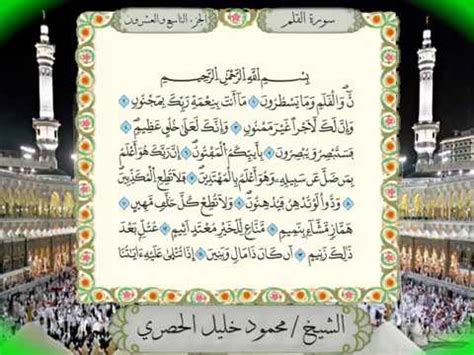 سورة القلم
الجزء التاسع والعشرون
بِسْمِ اللَّهِ الرَّحْمَٰنِ الرَّحِيمِ
نٓ وَالْقَلَمِ وَمَا يَسْطُرُونَ ۝ مَا أَنتَ بِنِعْمَةِ رَبِّكَ بِمَجْنُونٍ ۝
وَإِنَّ لَكَ لَأَجْرًا غَيْرَ مَمْنُونٍ ۝ وَإِنَّكَ لَعَلَىٰ خُلُقٍ عَظِيمٍ ۝
فَسَتُبْصِرُ وَيُبْصِرُونَ ۝ بِأَييِّكُمُ الْمَفْتُونُ ۝ إِنَّ رَبَّكَ هُوَ أَعْلَمُ
بِمَن ضَلَّ عَن سَبِيلِهِ وَهُوَ أَعْلَمُ بِالْمُهْتَدِينَ ۝ فَلَا تُطِعِ الْمُكَذِّبِينَ
۝ وَدُّوا لَوْ تُدْهِنُ فَيُدْهِنُونَ ۝ وَلَا تُطِعْ كُلَّ حَلَّافٍ مَّهِينٍ ۝
هَمَّازٍ مَّشَّاءٍ بِنَمِيمٍ ۝ مَّنَّاعٍ لِّلْخَيْرِ مُعْتَدٍ أَثِيمٍ ۝ عُتُلٍّ بَعْدَ
ذَٰلِكَ زَنِيمٍ ۝ أَن كَانَ ذَا مَالٍ وَبَنِينَ ۝ إِذَا تُتْلَىٰ عَلَيْهِ آيَاتُنَا
الشيخ / محمود خليل الحصري